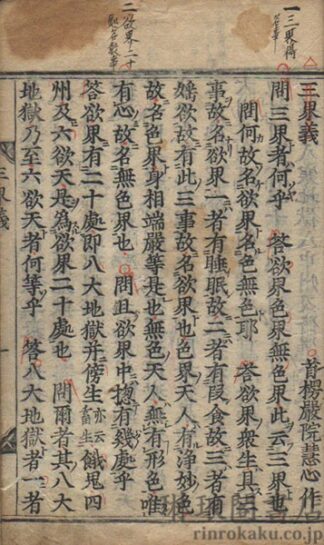 一三界得
名事
二欲界二十
処名数事
三界義
首楞嚴院慧心作
問三界者何乎 答欲界色界無色界此云三界也
問何故名欲界名色無色耶 答欲界衆生具三
事故名欲界一者有睡眠故二者有段食故三者有
婬欲故有此三事故名欲界也色界天人有浄妙色
故名色界身相端嚴等是也無色天人無有形色唯
有心故名無色界也 問且欲界中揔有幾處乎
答欲界有二十處即八大地獄并傍生亦云畜生餓鬼四
州及六欲天是為欲界二十處也 問爾者其八大
地獄乃至六欲天者何等乎 答八大地獄者一者
三界義
一
rinrokaku.co.jp